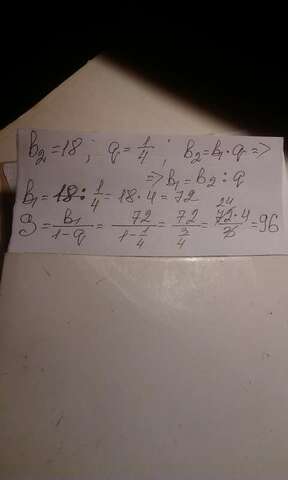 b₂=18; q=1/4; b₂=b₁·q=>
=>b₁=b₂:q
b₁=18:1/4=18·4=72
S=b₁/(1-q)=72/(1-1/4)=72/(3/4)=72·4/3=96
24